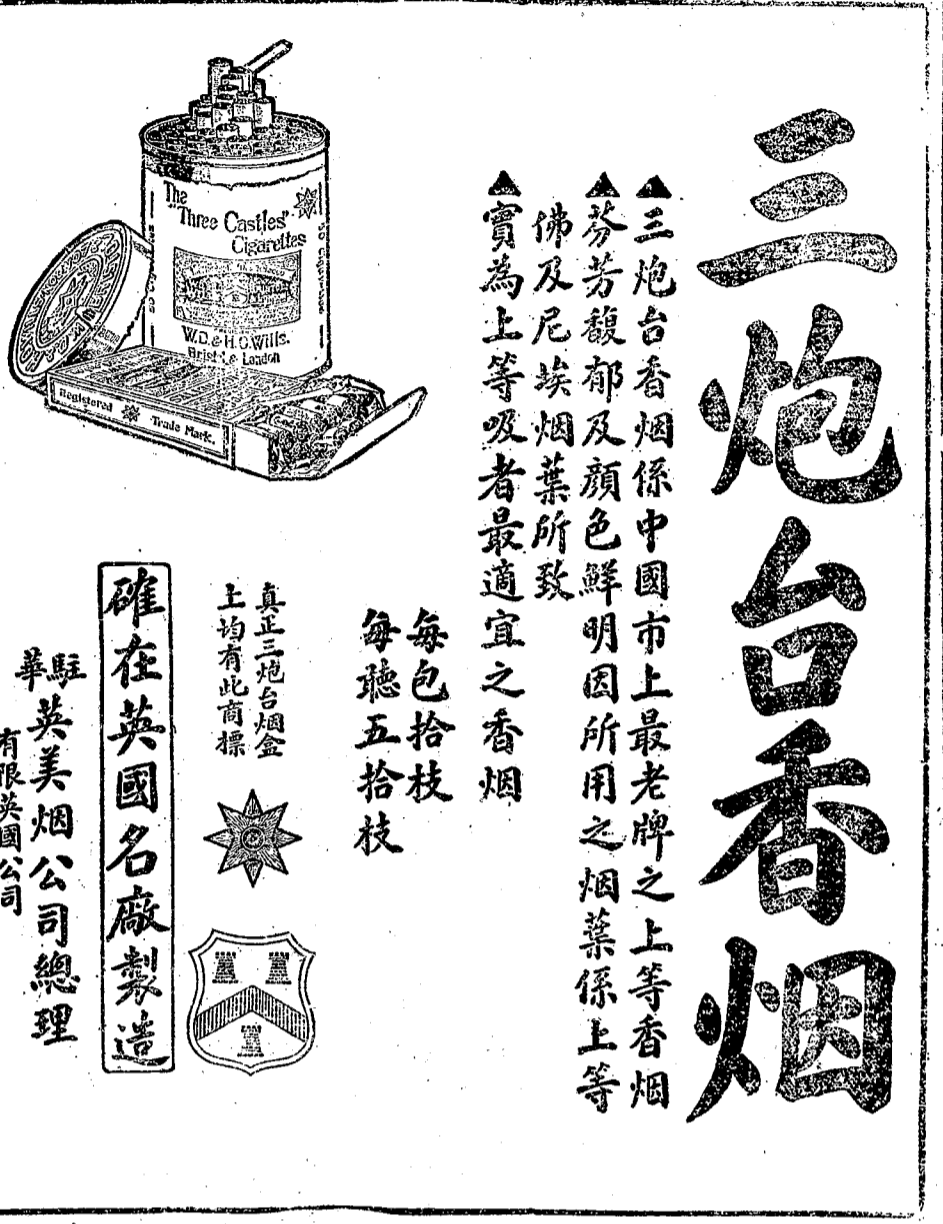 三炮台香烟
▲三炮台香烟係中國市上最老牌之上等香烟
▲芬芳馥郁及顏色鮮明因所用之烟葉係上等
佛及尼埃烟葉所致
▲實為上等吸者最適宜之香烟
每包拾枝
每聽五拾枝
真正三炮台烟盒
上均有此商標
確在英國名廠製造
駐華英美烟公司總理
有限英國公司
The
"Three Castles"
Cigarettes
W.D. & H.O. Wills.
Bristol & London
Registered Trade Mark.